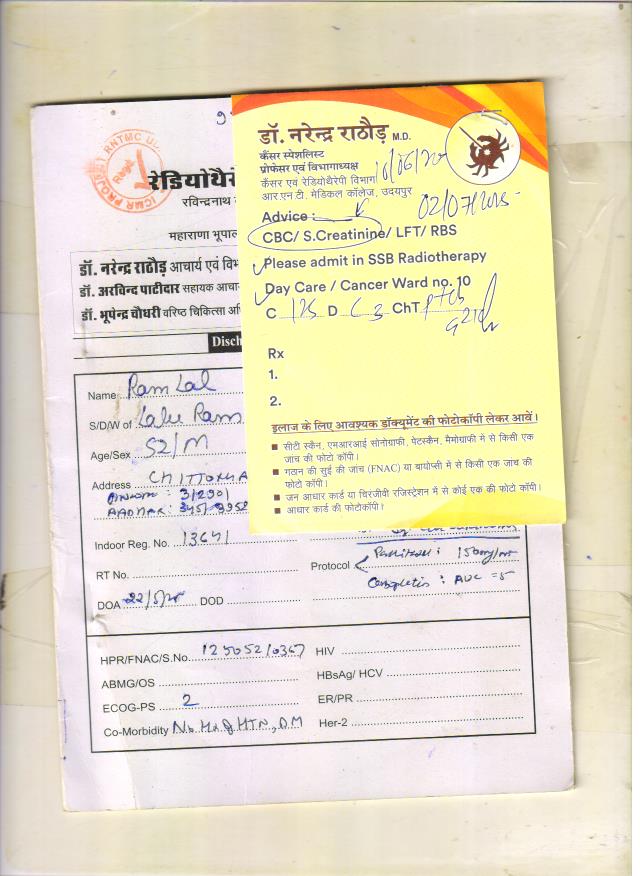 डॉ. नरेन्द्र राठौड़ M.D.
कैंसर स्पेशलिस्ट
प्रोफेसर एवं विभागाध्यक्ष
कैंसर एवं रेडियोथैरेपी विभाग
आर.एन.टी. मेडिकल कॉलेज, उदयपुर
02/07/2025
Advice :
CBC/ S.Creatinine/ LFT/ RBS
Please admit in SSB Radiotherapy
Day Care / Cancer Ward no. 10
C 125 D C3 ChT
Rx
1.
2.
इलाज के लिए आवश्यक डॉक्यूमेंट की फोटोकॉपी लेकर आवें।
■ सीटी स्कैन, एमआरआई सोनोग्राफी, पेटस्कैन, मैमोग्राफी में से किसी एक
जांच की फोटो कॉपी।
■ गठान की सुई की जांच (FNAC) या बायोप्सी में से किसी एक जांच की
फोटो कॉपी।
■ जन आधार कार्ड या चिरंजीवी रजिस्ट्रेशन में से कोई एक की फोटो कॉपी।
■ आधार कार्ड की फोटकॉपी।
ICMR PROJECT RNTMC
Regd.
रेडियोथैरे
रविन्द्रनाथ
महाराणा भूपाल
डॉ. नरेन्द्र राठौड़ आचार्य एवं विभ
डॉ. अरविन्द पाटीदार सहायक आचा
डॉ. भूपेन्द्र चौधरी वरिष्ठ चिकित्सा अधि
Disch
Name Ram Lal
S/D/W of Lalu Ram
Age/Sex 52/M
Address
312901
Indoor Reg. No. 13641
RT No.
Protocol
DOA 22/5/25 DOD
AUC =5
HPR/FNAC/S.No. 125052/0367 HIV
ABMG/OS HBsAg/ HCV
ECOG-PS 2 ER/PR
Co-Morbidity No H/o HTN, DM Her-2